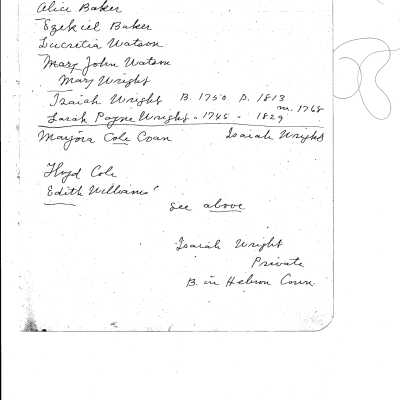 Alice Baker
Ezekiel Baker
Lucretia Watson
Mary John Watson
Mary Wright
Isaiah Wright B. 1750 D. 1813
m. 1768
Sarah Payne Wright - 1745 - 1829
Marjora Cole Coan Isaiah Wright
Floyd Cole
Edith Williams
See above
Isaiah Wright
Private
B. in Hebron Conn